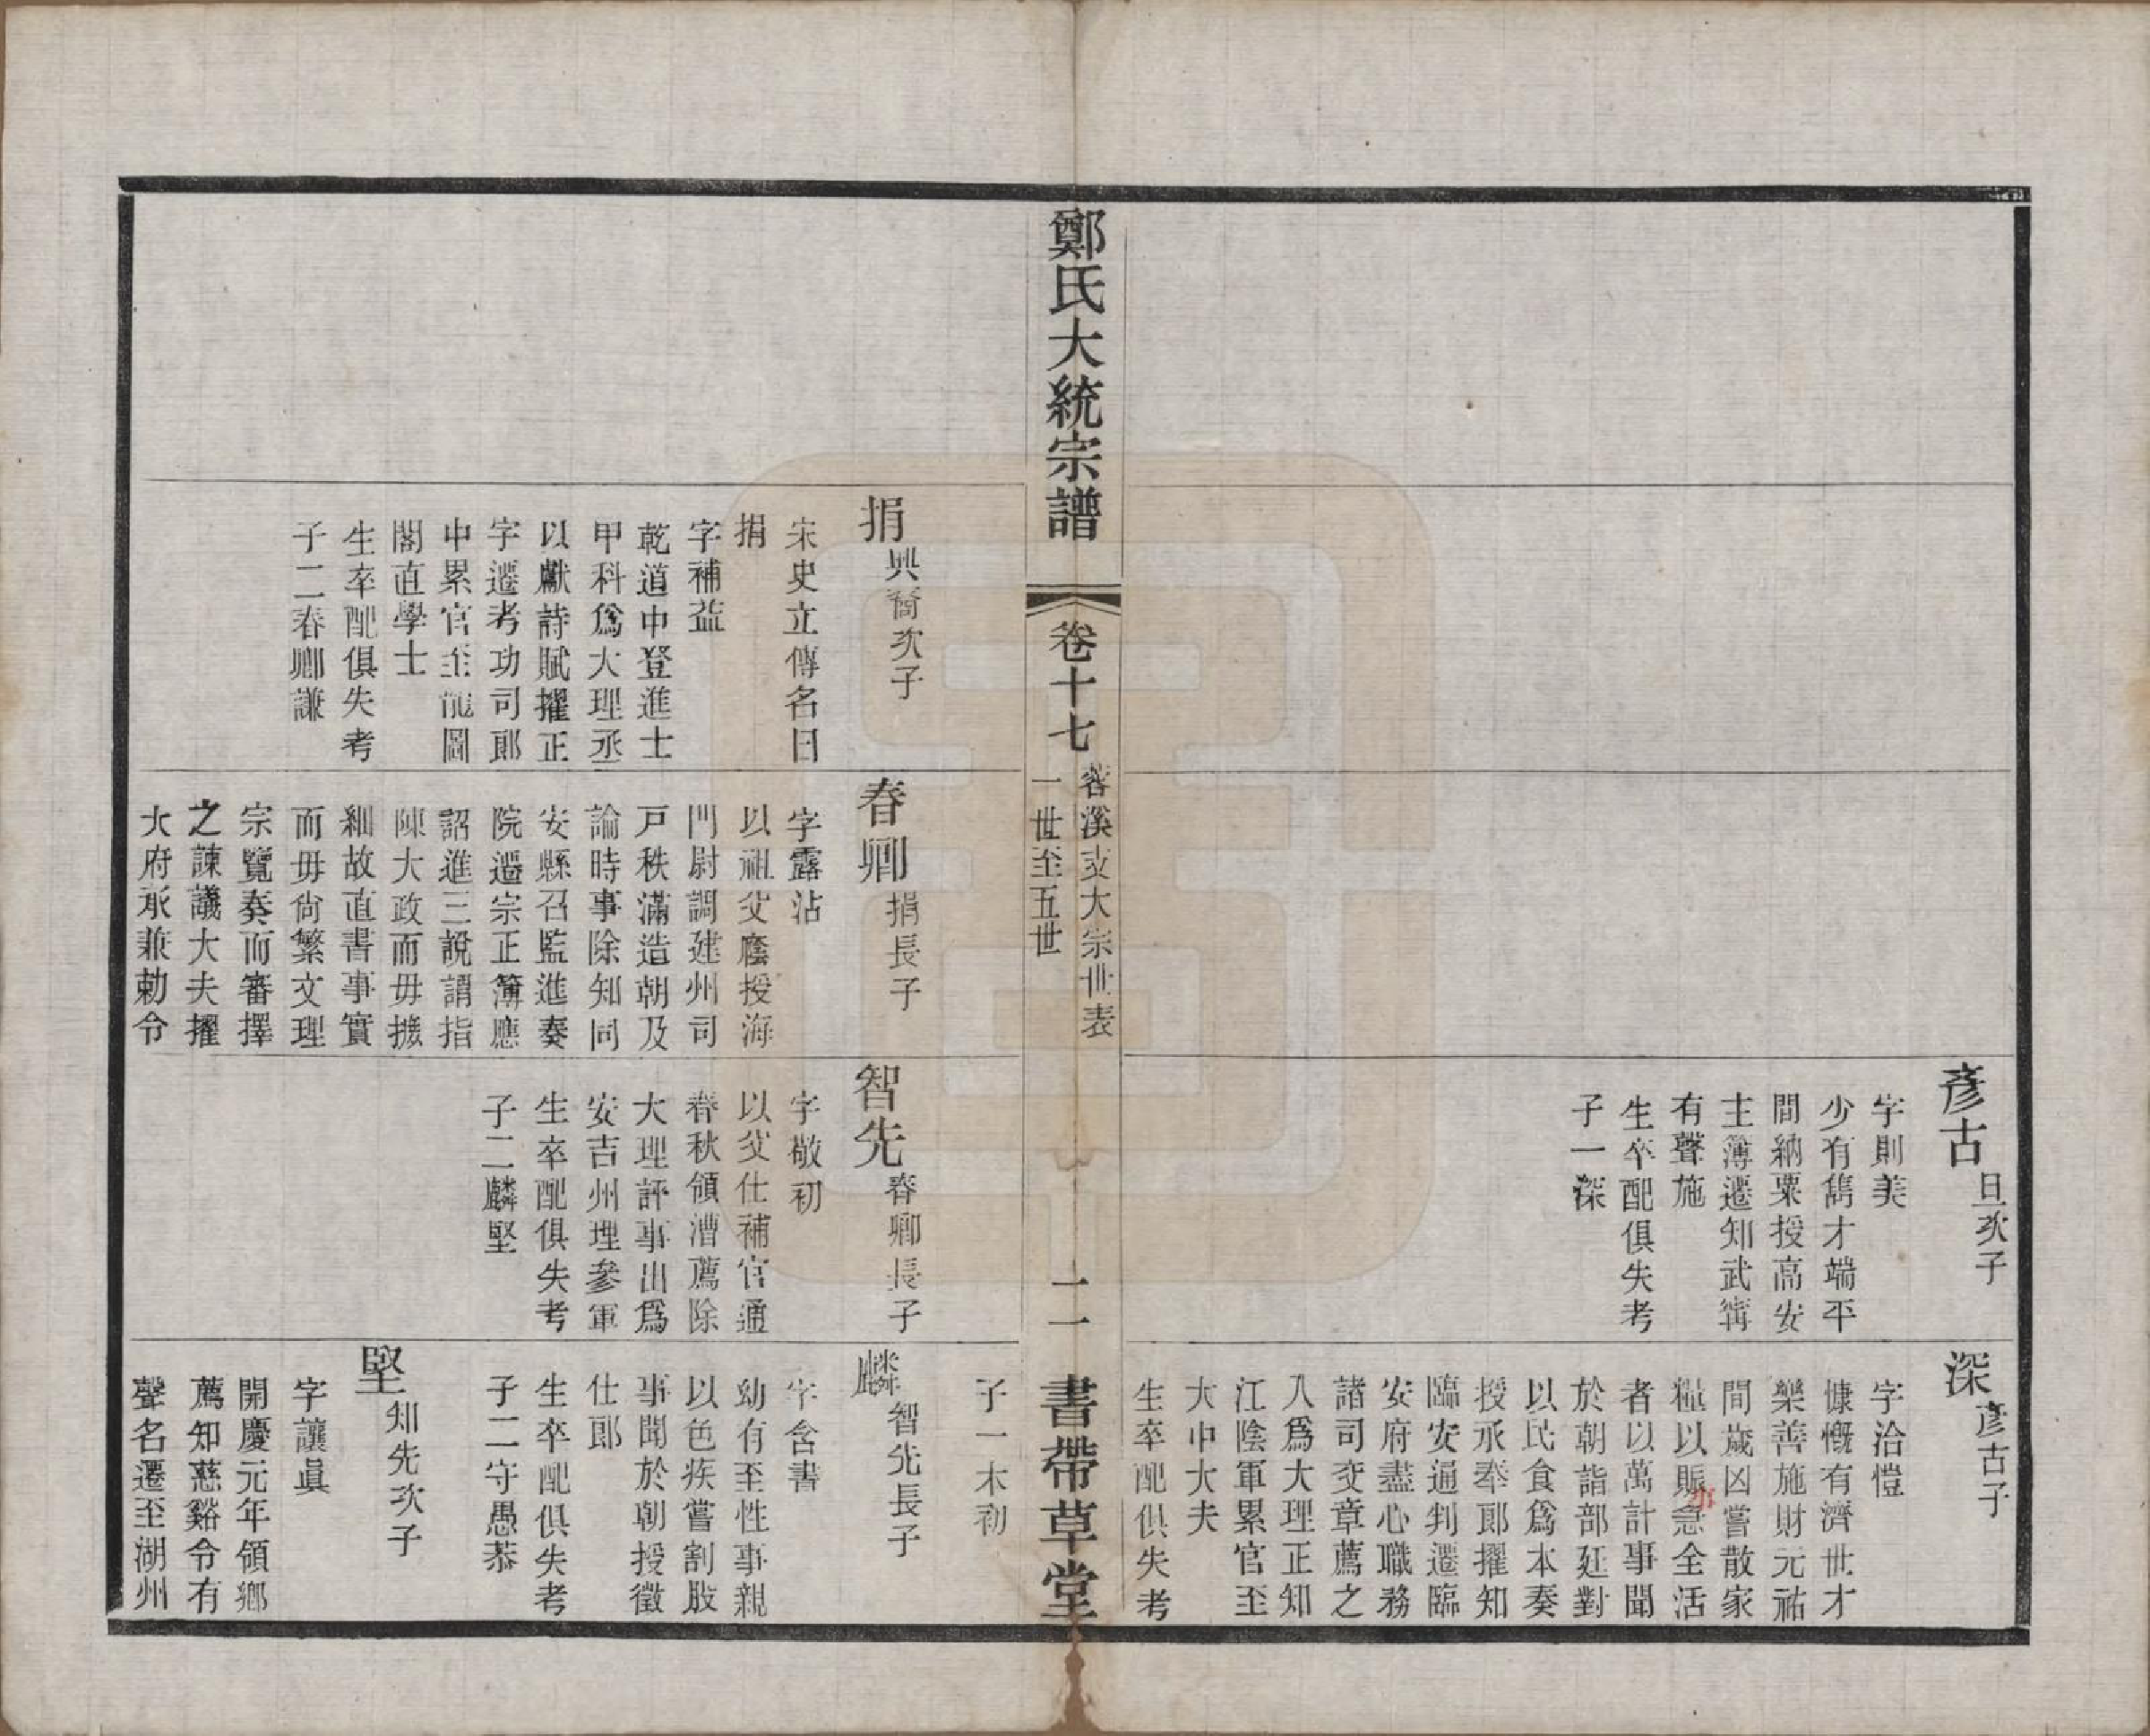 彥古
旦次子
字則美
少有雋才端平
間納粟授高安
主簿遷知武寗
有聲施
生卒配俱失考
子一深
深
彥古子
字洽愷
慷慨有濟世才
樂善施財元祐
間歲凶嘗散家
糧以賑急全活
者以萬計事聞
於朝詣部廷對
以民食爲本奏
授承奉郎擢知
臨安通判遷臨
安府盡心職務
諸司交章薦之
入爲大理正知
江陰軍累官至
大中大夫
生卒配俱失考
鄭氏大統宗譜
卷十七
苕溪支大宗世表
一世至五世
二
書帶草堂
捐
興裔次子
宋史立傳名曰
捐
字補益
乾道中登進士
甲科爲大理丞
以獻詩賦擢正
字遷考功司郎
中累官至龍圖
閣直學士
生卒配俱失考
子二春卿謙
春卿
捐長子
字露沾
以祖父廕授海
門尉調建州司
戸秩滿造朝及
論時事除知同
安縣召監進奏
院遷宗正簿應
詔進三說謂指
陳大政而毋摭
細故直書事實
而毋尙繁文理
宗覽奏而審擇
之諫議大夫擢
大府丞兼勅令
智先
春卿長子
字敬初
以父仕補官通
春秋領漕薦除
大理評事出爲
安吉州理參軍
生卒配俱失考
子二麟堅
子一木初
麟
智先長子
字含書
幼有至性事親
以色疾嘗割股
事聞於朝授徵
仕郎
生卒配俱失考
子二守愚恭
堅
知先次子
字讓眞
開慶元年領鄉
薦知慈谿令有
聲名遷至湖州